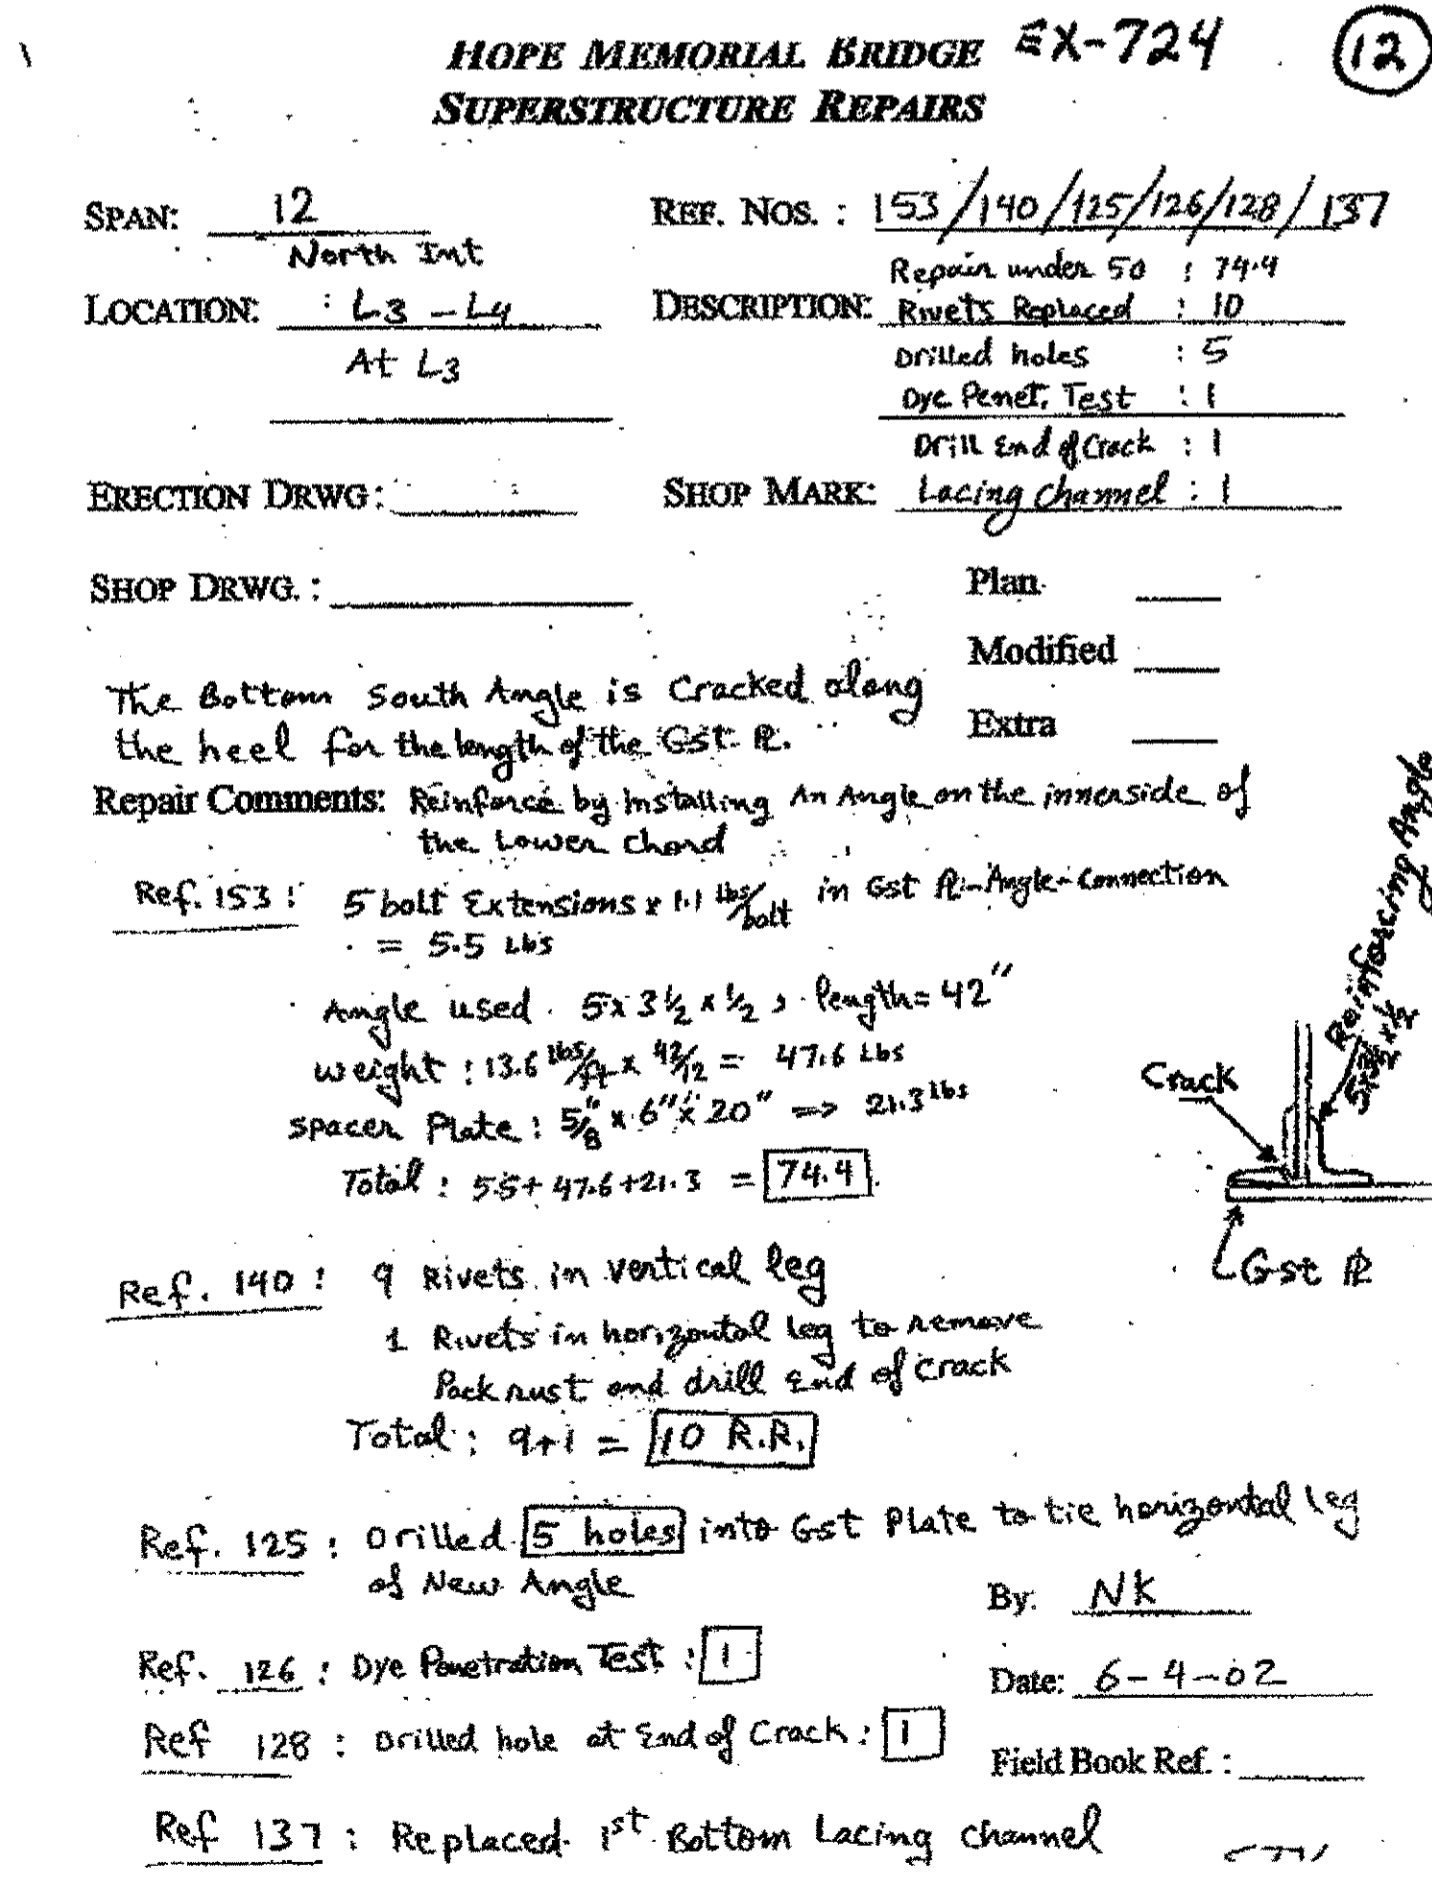 HOPE MEMORIAL BRIDGE EX-724 12
SUPERSTRUCTURE REPAIRS
SPAN: 12 REF. NOS. : 153/140/125/126/128/137
North Int
Repair under 50 : 74.4
LOCATION: : L3 - L4 DESCRIPTION: Rivets Replaced : 10
At L3
Drilled holes : 5
Dye Penet. Test : 1
Drill End of Crack : 1
ERECTION DRWG: SHOP MARK: Lacing channel : 1
SHOP DRWG. : Plan
Modified
The Bottom South Angle is Cracked along
Extra
the heel for the length of the Gst PL.
Repair Comments: Reinforce by installing An Angle on the innerside of
the Lower Chord
Ref. 153: 5 bolt Extensions x 1.1 lbs/bolt in Gst PL-Angle-Connection
= 5.5 Lbs
Angle used. 5x 3 1/2 x 1/2, length = 42"
weight : 13.6 lbs/ft x 42/12 = 47.6 Lbs
spacer Plate : 5/8" x 6" x 20" => 21.3 lbs
Total : 5.5+ 47.6+21.3 = 74.4
Reinforcing Angle
5x3 1/2 x 1/2
Crack
Gst PL
Ref. 140 : 9 Rivets in vertical leg
1 Rivets in horizontal leg to remove
Pack rust and drill End of crack
Total : 9+1 = 10 R.R.
Ref. 125 : Drilled 5 holes into Gst Plate to tie horizontal leg
of New Angle
By: NK
Ref. 126 : Dye Penetration Test : 1
Date: 6-4-02
Ref 128 : Drilled hole at End of Crack : 1
Field Book Ref. :
Ref 137 : Replaced 1st Bottom Lacing channel